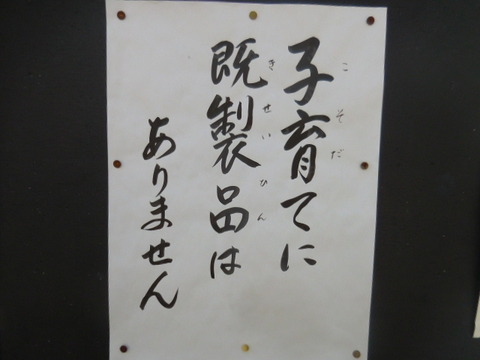 子育てに
こそだ
既製品は
きせいひん
ありません